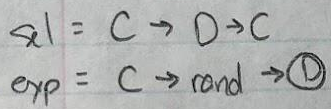 sel = C → D → C
exp = C → rand → D